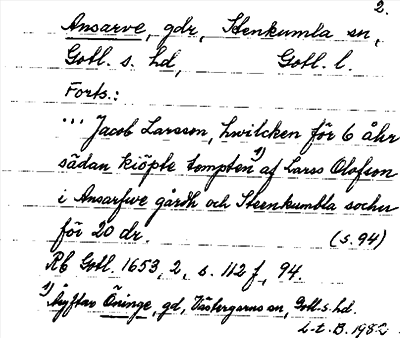 2.
Ansarve, gdr, Stenkumla sn,
Gotl. s. hd, Gotl. l.
Forts.:
... Jacob Larsson, hwilcken för 6 åhr
sädan kiöpte tompten 1) af Larss Olofson
i Ansarfwe gårdh och Steenkumbla sochn
för 20 dr. (s. 94)
Rb Gotl. 1653, 2, s. 112 f, 94.
1) Åsyftar Öninge, gd, Västergarns sn, Gotl. s. hd.
L-t. B. 1982